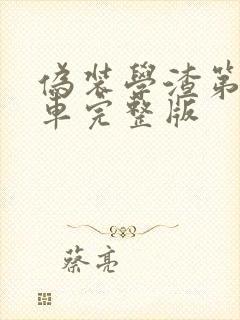 偽裝學渣第
車完整版
蔡亮